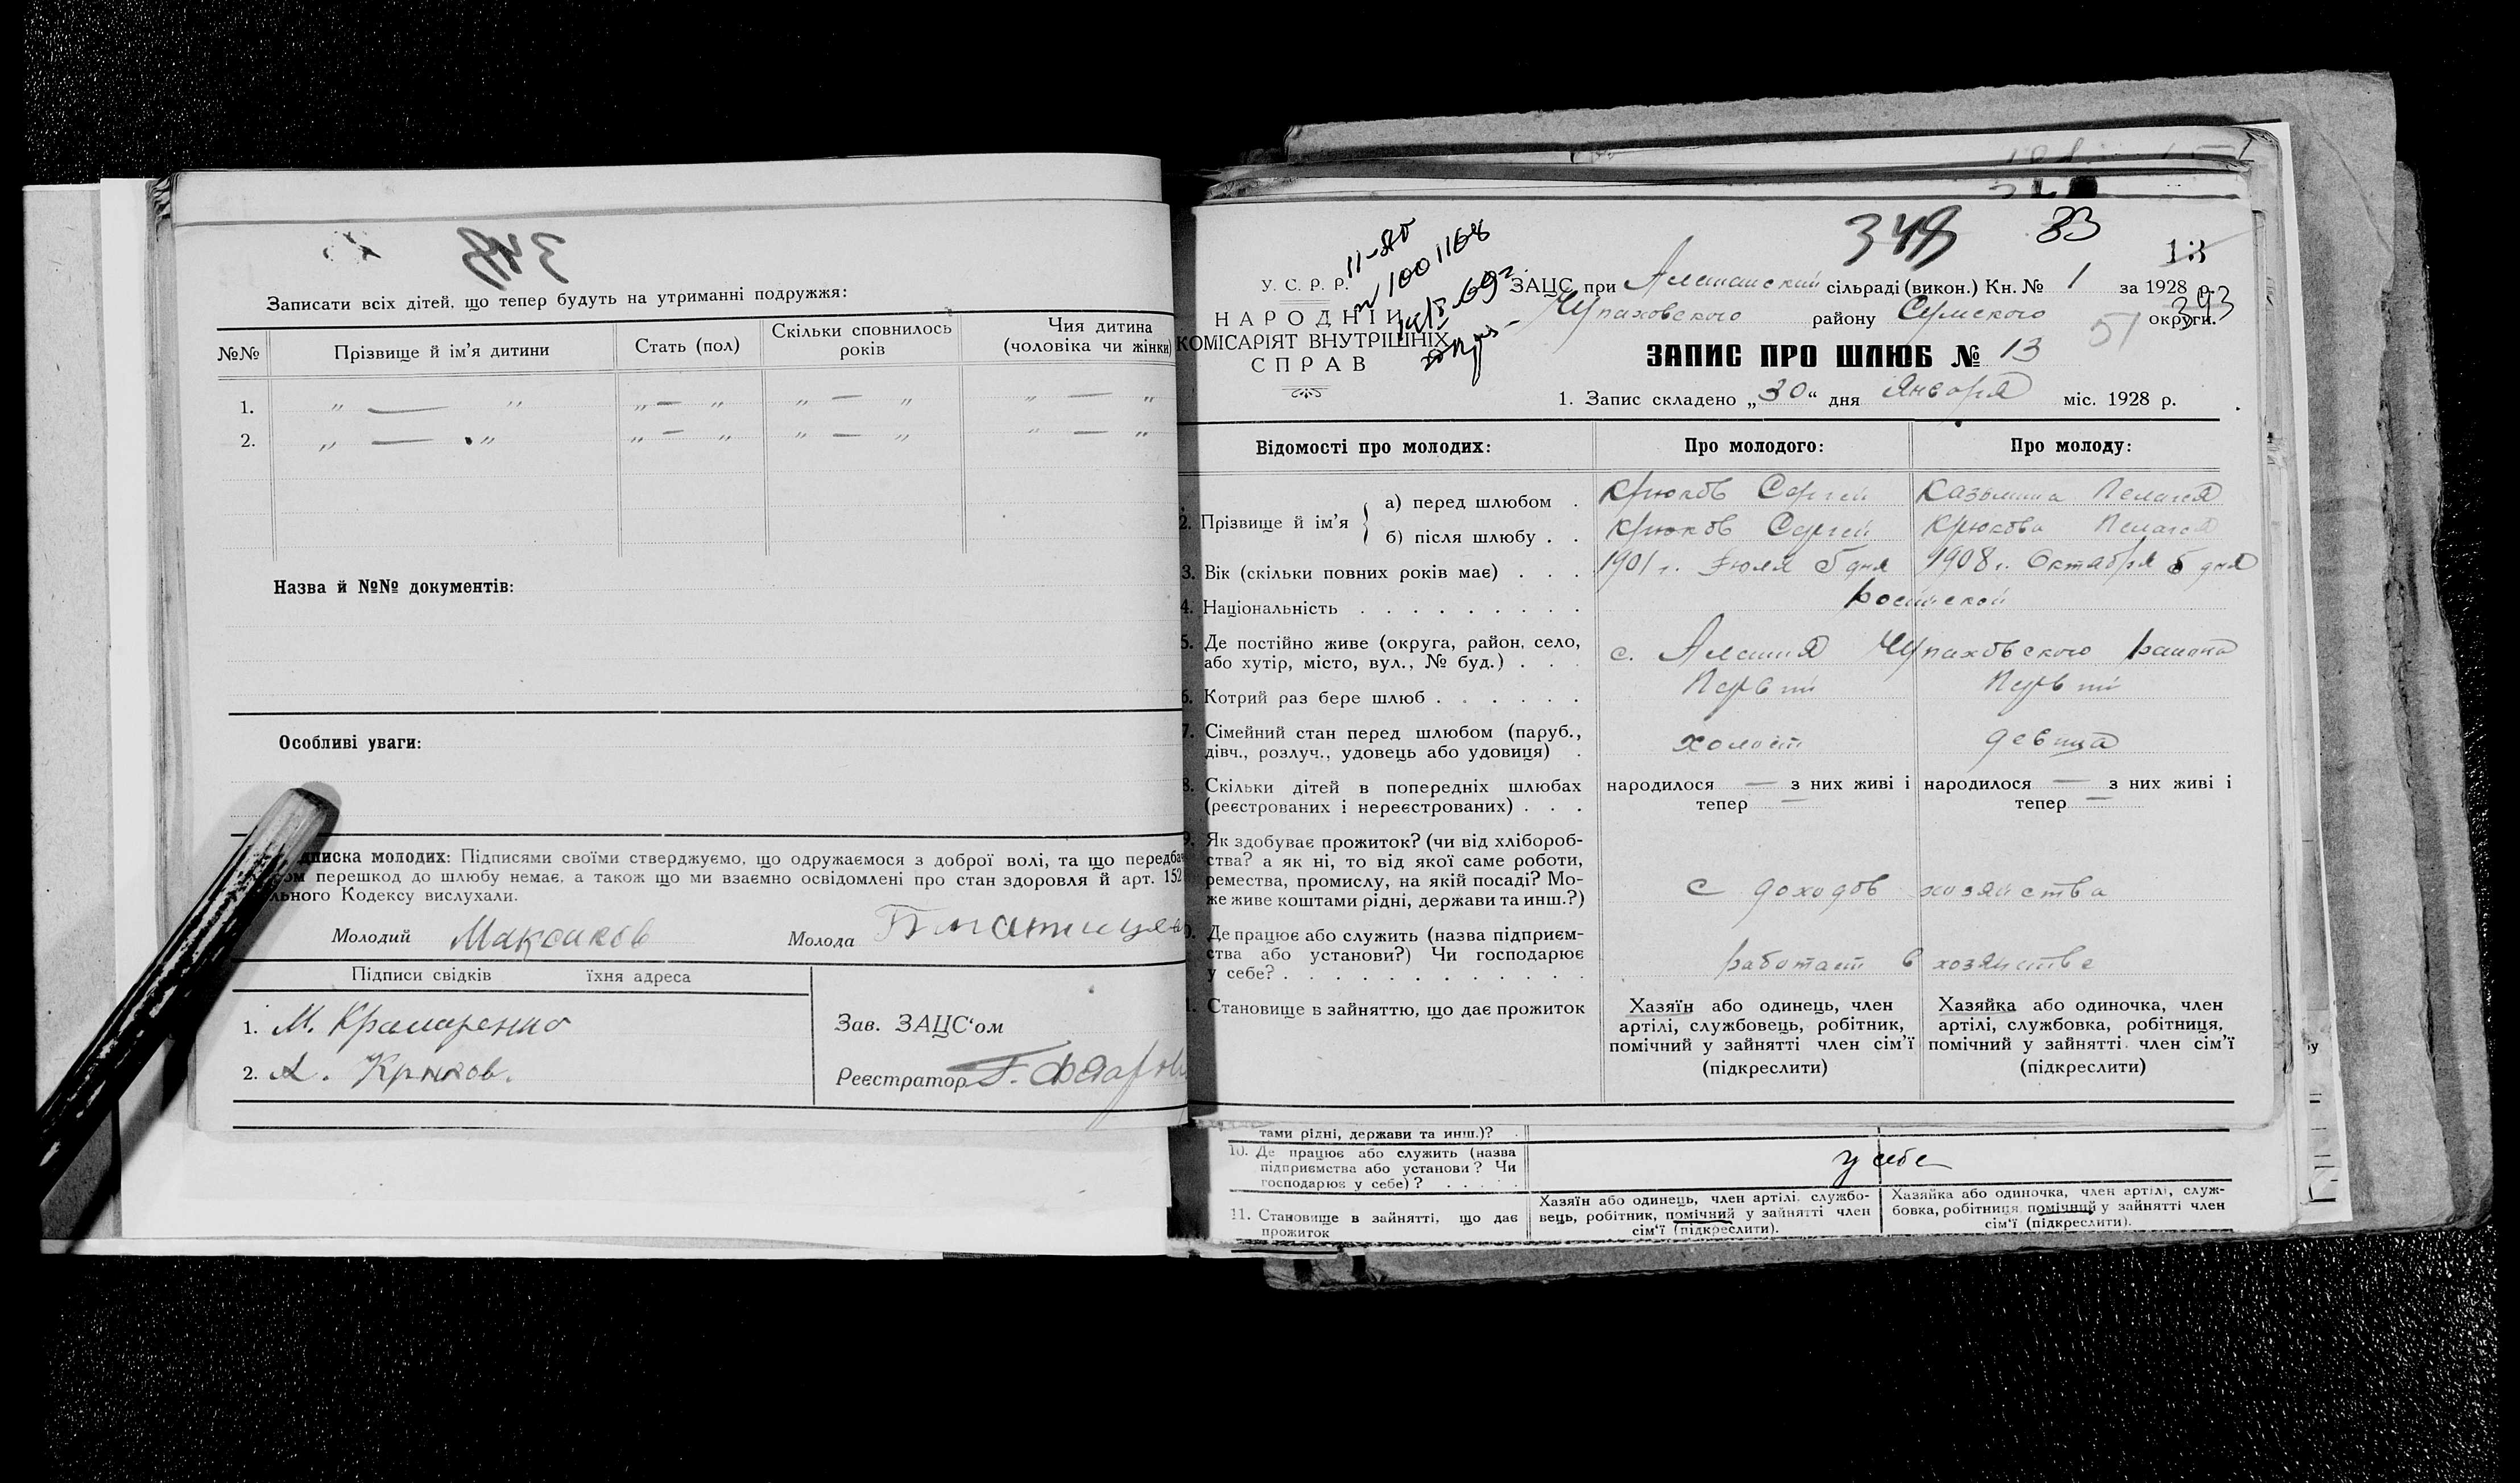 348
Записати всіх дітей, що тепер будуть на утриманні подружжя:
№№ Прізвище й ім'я дитини Стать (пол) Скільки сповнилось років Чия дитина (чоловіка чи жінки)
1. " — " " — " " — " " — "
2. " — " " — " " — " " — "
Назва й №№ документів:
Особливі уваги:
писка молодих: Підписями своїми стверджуємо, що одружаємося з доброї волі, та що передба
ом перешкод до шлюбу немає, а також що ми взаємно освідомлені про стан здоровля й арт. 152
льного Кодексу вислухали.
Молодий Максаков Молода
Підписи свідків їхня адреса
1. М. Крамаренко Зав. ЗАЦС'ом
2. А. Крюков. Реєстратор Г.
348 83
13
11-АЮ
№ 1001168
У. С. Р. Р.
НАРОДНІЙ
КОМІСАРІЯТ ВНУТРІШНІХ
СПРАВ
ЗАЦС при сільраді (викон.) Кн. № 1 за 1928 р.
Чупаховского району Сумского округи.
393
51
ЗАПИС ПРО ШЛЮБ № 13
1. Запис складено „30“ дня Января міс. 1928 р.
Відомості про молодих: Про молодого: Про молоду:
2. Прізвище й ім'я { а) перед шлюбом . Крюков Сергей Казьмина Пелагея
б) після шлюбу . . Крюков Сергей Крюкова Пелагея
3. Вік (скільки повних років має) . . . 1901 г. Июля 5 дня 1908 г. Октября 5 дня
4. Національність . . . . . . . . .
5. Де постійно живе (округа, район, село,
або хутір, місто, вул., № буд.) . . . с. Алешня Чупаховского района
6. Котрий раз бере шлюб . . . . . . Первий Первий
7. Сімейний стан перед шлюбом (паруб.,
дівч., розлуч., удовець або удовиця) . холост девица
8. Скільки дітей в попередніх шлюбах народилося — з них живі і народилося — з них живі і
(реєстрованих і нереєстрованих) . . . тепер — тепер —
9. Як здобуває прожиток? (чи від хлібороб-
ства? а як ні, то від якої саме роботи,
ремества, промислу, на якій посаді? Мо-
же живе коштами рідні, держави та инш.?) с доходов хозяйства
10. Де працює або служить (назва підприєм-
ства або установи?) Чи господарює
у себе? . . . . . . . . . . . . работает в хозяйстве
11. Становище в зайняттю, що дає прожиток Хазяїн або одинець, член Хазяйка або одиночка, член
артілі, службовець, робітник, артілі, службовка, робітниця,
помічний у зайнятті член сім'ї помічний у зайнятті член сім'ї
(підкреслити) (підкреслити)
тами рідні, держави та инш.)?
10. Де працює або служить (назва
підприємства або установи? Чи
господарює у себе)? . . . . . у себе
11. Становище в зайнятті, що дає
прожиток
Хазяїн або одинець, член артілі, службо-
вець, робітник, помічний у зайнятті член
сім'ї (підкреслити).
Хазяйка або одиночка, член артілі, служ-
бовка, робітниця, помічний у зайнятті член
сім'ї (підкреслити).